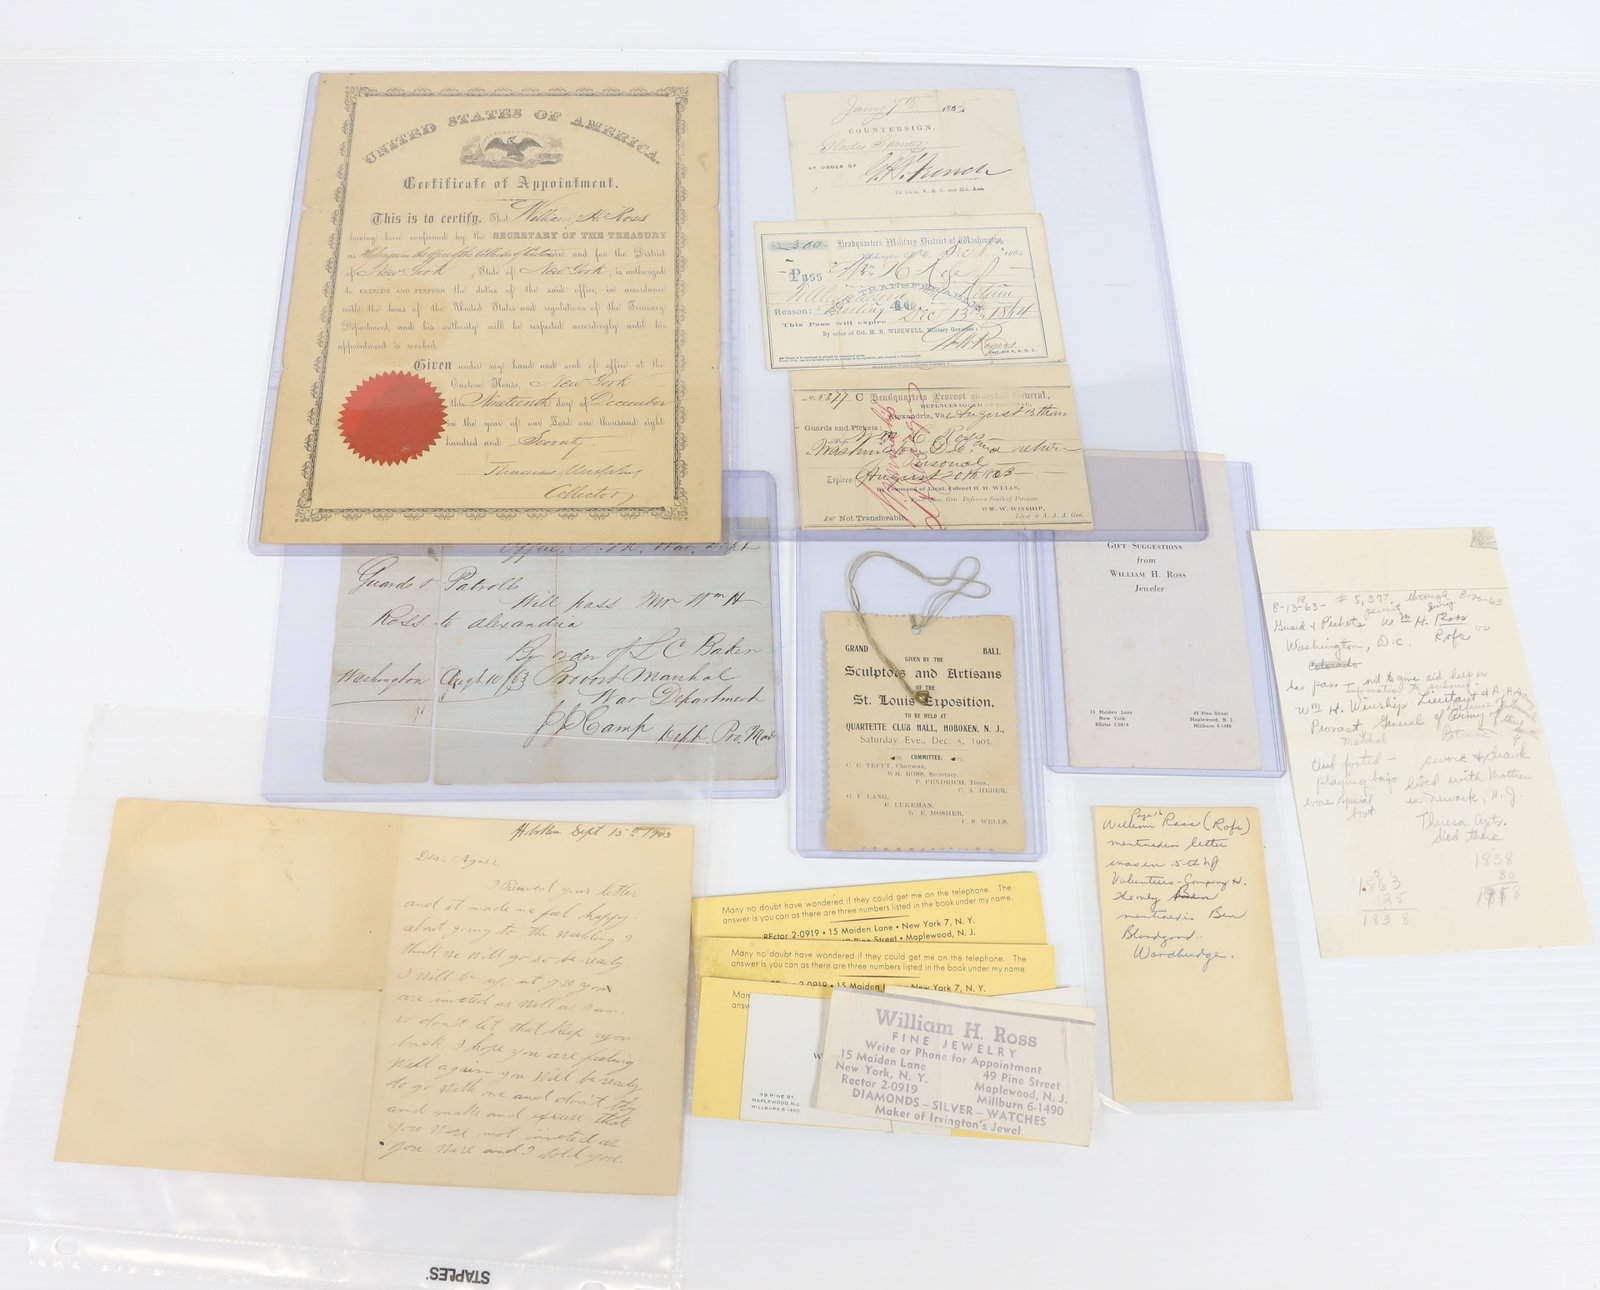 UNITED STATES OF AMERICA.
Certificate of Appointment.
This is to certify, That William H. Ross
having been confirmed by the SECRETARY OF THE TREASURY
as in the office of the Collector of Customs and for the District
of New York, State of New York, is authorized
to EXERCISE AND PERFORM the duties of the said office, in accordance
with the laws of the United States and regulations of the Treasury
Department, and his authority will be respected accordingly until his
appointment is revoked.
Given under my hand and seal of office at the
Custom House, New York
this Nineteenth day of December
in the year of our Lord one thousand eight
hundred and Seventy.
Thomas Murphy
Collector
Jany 7th 1865
COUNTERSIGN.
BY ORDER OF
300 Headquarters Military District of Washington,
Dec 1864
Pass Wm H Ross
NOT TRANSFERABLE
To Alexandria & Return
Reason: 40
This Pass will expire Dec 13th 1864
By order of Col. M. N. WISEWELL, Military Governor:
No. 5377 C Headquarters Provost Marshal General,
DEFENCES SOUTH OF POTOMAC,
Alexandria, Va., August 13th 1863
Guards and Pickets:
Wm H. Ross
Washington D.C. and return
Personal
Expires August 20th 1863
By Command of Lieut. Colonel H. H. WELLS,
Prov. Mar. Gen. Defences South of Potomac
WM. W. WINSHIP,
Lieut & A. A. A. Gen.
Not Transferable.
Guards & Patrolls
Will pass Mr Wm H
Ross to alexandria
By order of L C Baker
Washington Augt 10/63 Provost Marshal
War Department
J J Camp Dept. Pro. Mar
GRAND BALL
GIVEN BY THE
Sculptors and Artisans
OF THE
St. Louis Exposition,
TO BE HELD AT
QUARTETTE CLUB HALL, HOBOKEN, N. J.,
Saturday Eve., Dec. 5, 1903.
COMMITTEE:
C. E. TEFFT, Chairman,
WM. ROSS, Secretary,
P. FENDRICH, Treas.
C. A. HEBER,
G. F. LANG,
E. LUKEMAN,
W. E. MOSHER,
C. S. WELLS.
GIFT SUGGESTIONS
from
WILLIAM H. ROSS
Jeweler
15 Maiden Lane
New York
REctor 2-0919
49 Pine Street
Maplewood, N. J.
Millburn 6-1490
8-13-63- # 5,377 through 8-20-63
18 permit
Guard & Pickets Wm H. Ross or
Rofs
Washington, D.C.
Colorado
has pass - not to give aid, help or
information to enemy -
Wm H. Winship Lieutant & A.A.A.
Provost General of Army of the
Marshal
Club footed - swore & drank
playing banjo lived with Mother
wore special in Newark, N. J.
boot
Theresa Apts.
died there
1863
25
1838
1838
80
1918
Page 16
William Ross (Rofs)
mentioned in letter
was in 5th NJ
Volunteers - Company H.
Henry
mentioned in Ben
Bloodgood.
Woodbridge.
Hoboken Sept 15th 1903
Dear Agnes
I Received your letter
and it made me feel happy.
about going to the wedding I
think we will go so be ready
I will be up at 7.30 you
are invited as well as I am.
so don't let that keep you
back. I hope you are feeling
well again you will be ready
to go with me and don't try
and make and excuse that
you were not invited as
you were and I told you.
Many no doubt have wondered if they could get me on the telephone. The
answer is you can as there are three numbers listed in the book under my name.
REctor 2-0919 • 15 Maiden Lane • New York 7, N. Y.
Pine Street • Maplewood, N. J.
Many no doubt have wondered if they could get me on the telephone. The
answer is you can as there are three numbers listed in the book under my name.
2-0919 • 15 Maiden New York 7, N. Y.
49 PINE ST.
MAPLEWOOD, N.J.
MILLBURN 6-1490
William H. Ross
FINE JEWELRY
Write or Phone for Appointment
15 Maiden Lane
New York, N. Y.
Rector 2-0919
49 Pine Street
Maplewood, N. J.
Millburn 6-1490
DIAMONDS – SILVER – WATCHES
Maker of Irvington's Jewel
STAPLES